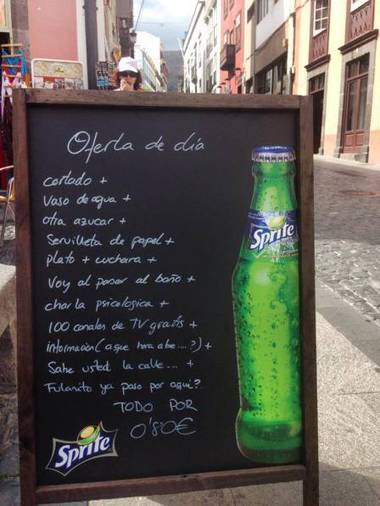 Oferta de día
cortado +
Vaso de agua +
otra azucar +
Servilleta de papel +
plato + cuchara +
Voy al pasar al baño +
charla psicologica +
100 canales de TV gratis +
informacion (a que hora abe....?) +
Sabe usted la calle.... +
Fulanito ya paso por aqui?
TODO POR
0'80€
Sprite
Sprite